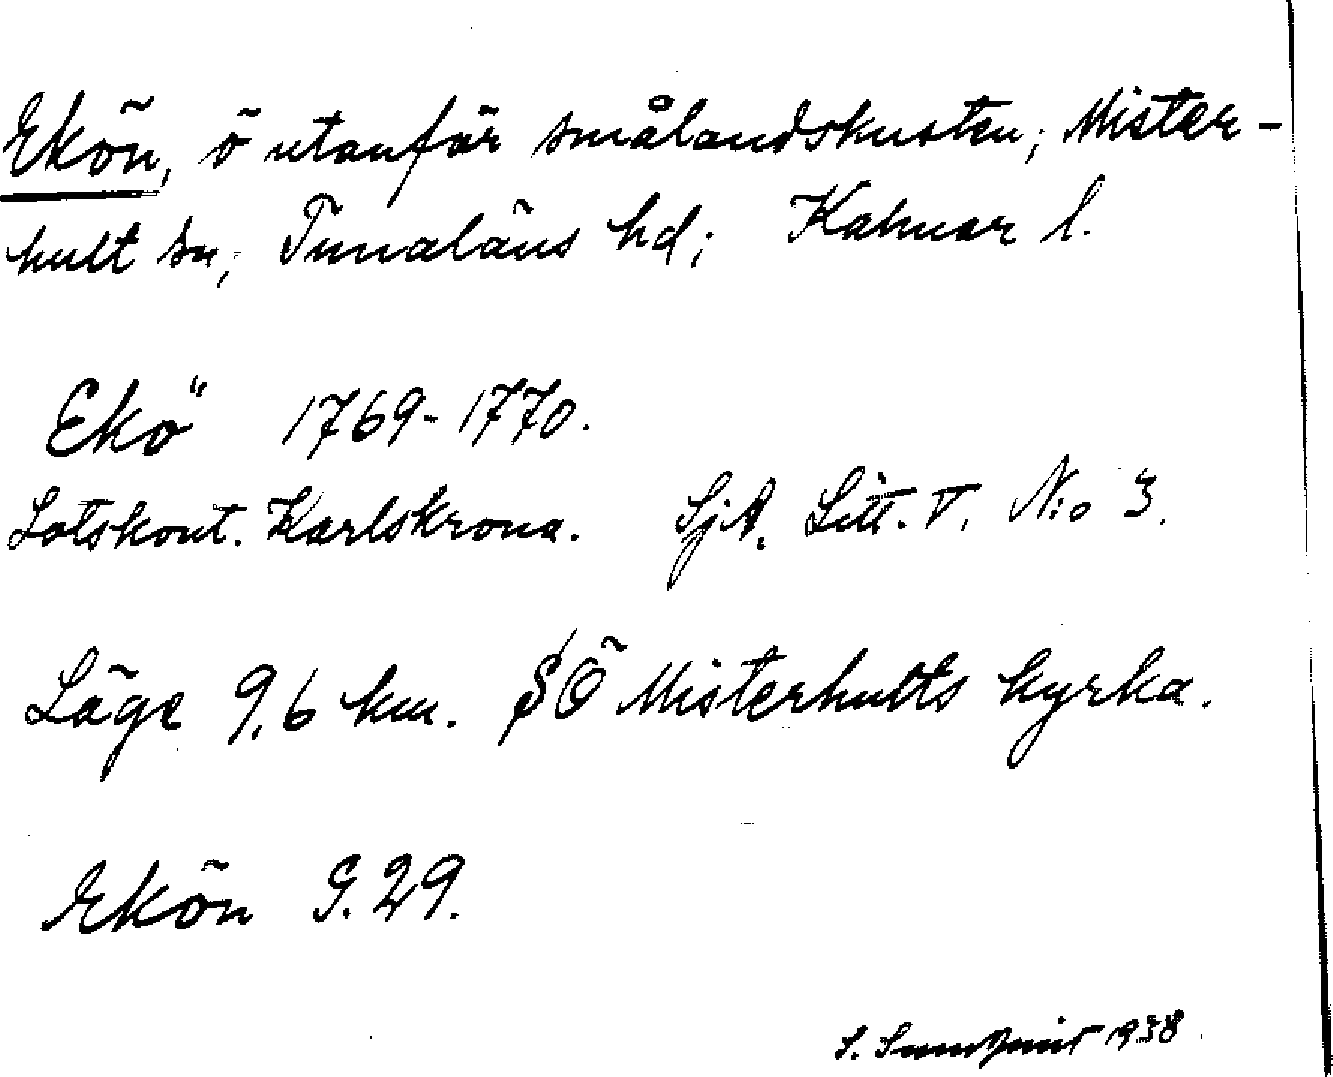 Ekön, ö utanför smålandskusten; Mister-
hult sn; Tunaläns hd; Kalmar l.
Ekö 1769-1770.
Lotskont. Karlskrona. SjA. Litt. V. N:o 3.
Läge 9,6 km. SÖ Misterhults kyrka.
Ekön G. 29.
S. Sundquist 1938